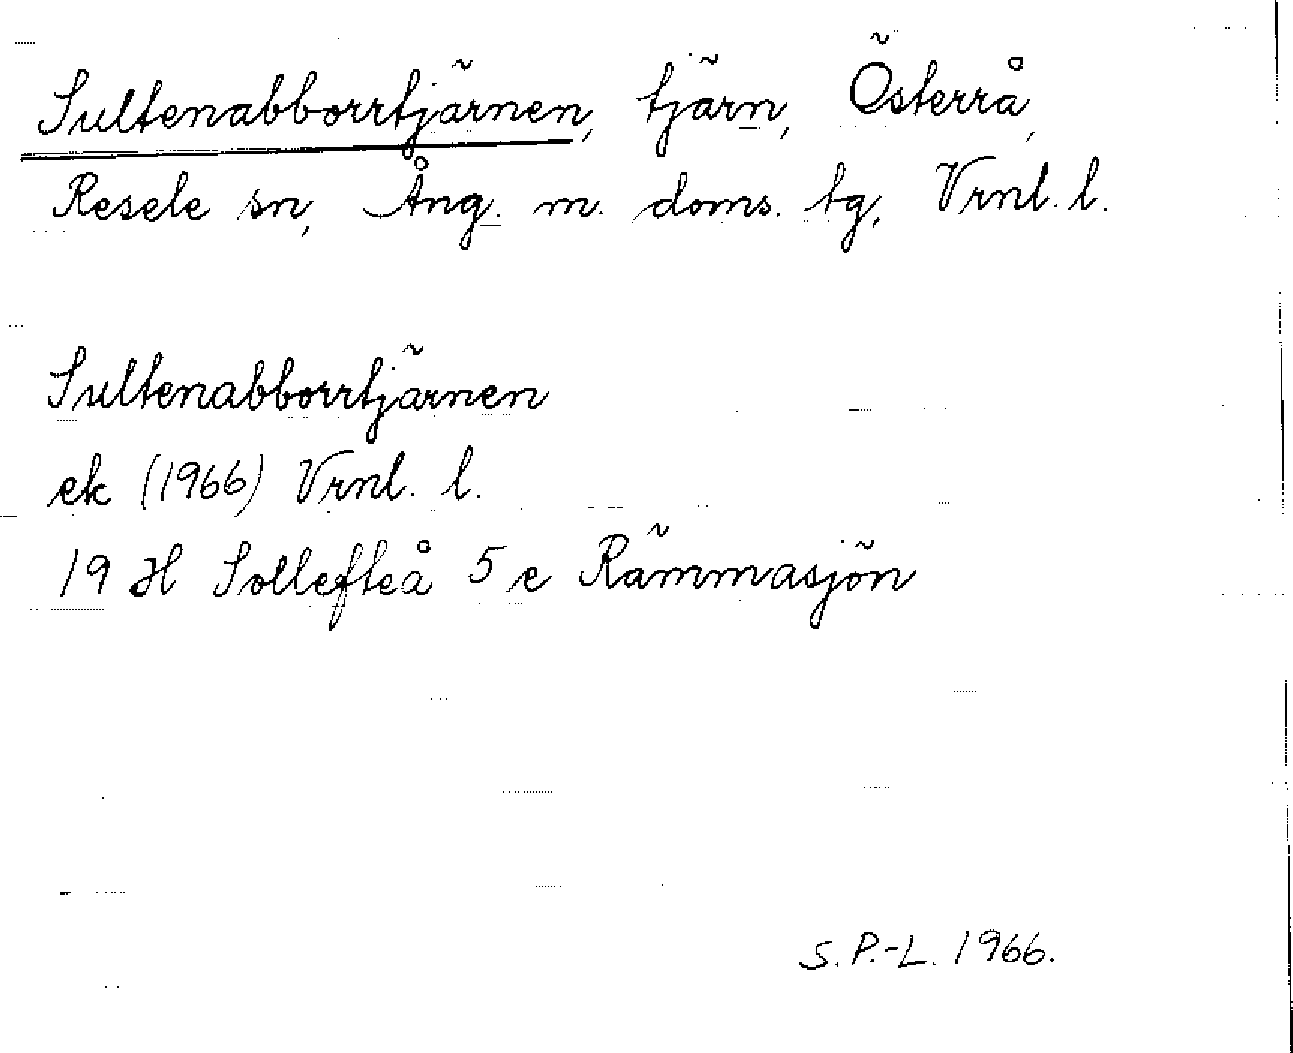 Sultenabborrtjärnen, tjärn, Österrå,
Resele sn, Ång. m. doms. tg, Vrnl. l.
Sultenabborrtjärnen
ek (1966) Vrnl. l.
19 H Sollefteå 5 e Rämmasjön
S. P.-L. 1966.